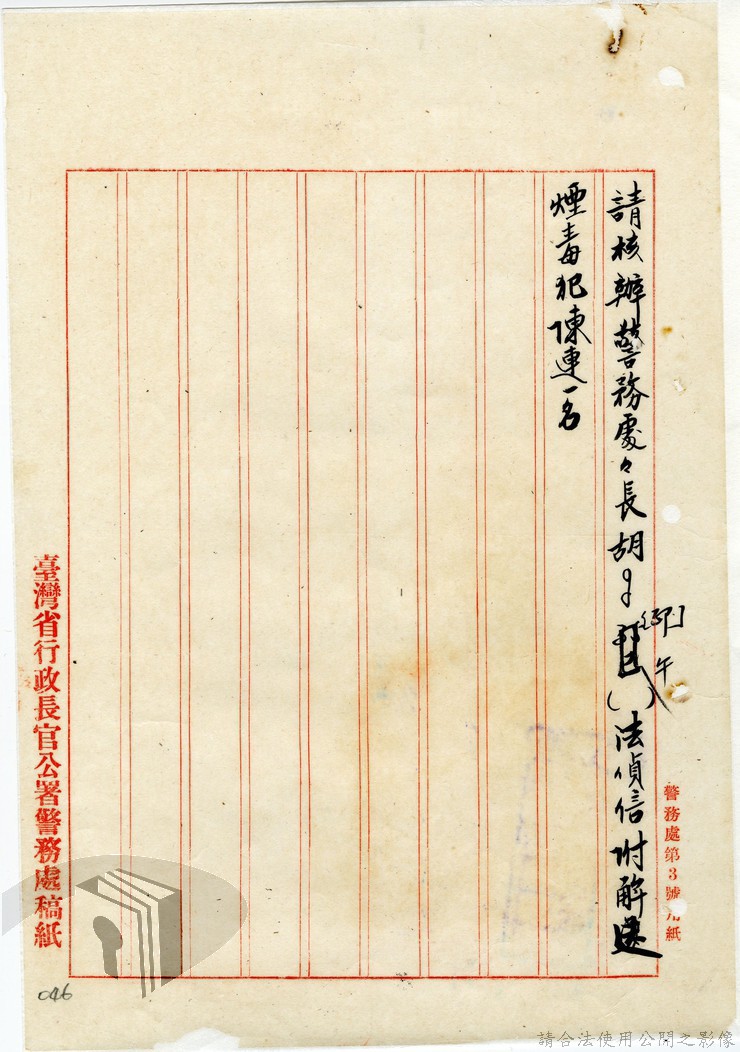 請核辦警務處々長胡
卬
午
( )法偵信附解送
煙毒犯陳連一名
警務處第3號用紙
臺灣省行政長官公署警務處稿紙
046
請合法使用公開之影像